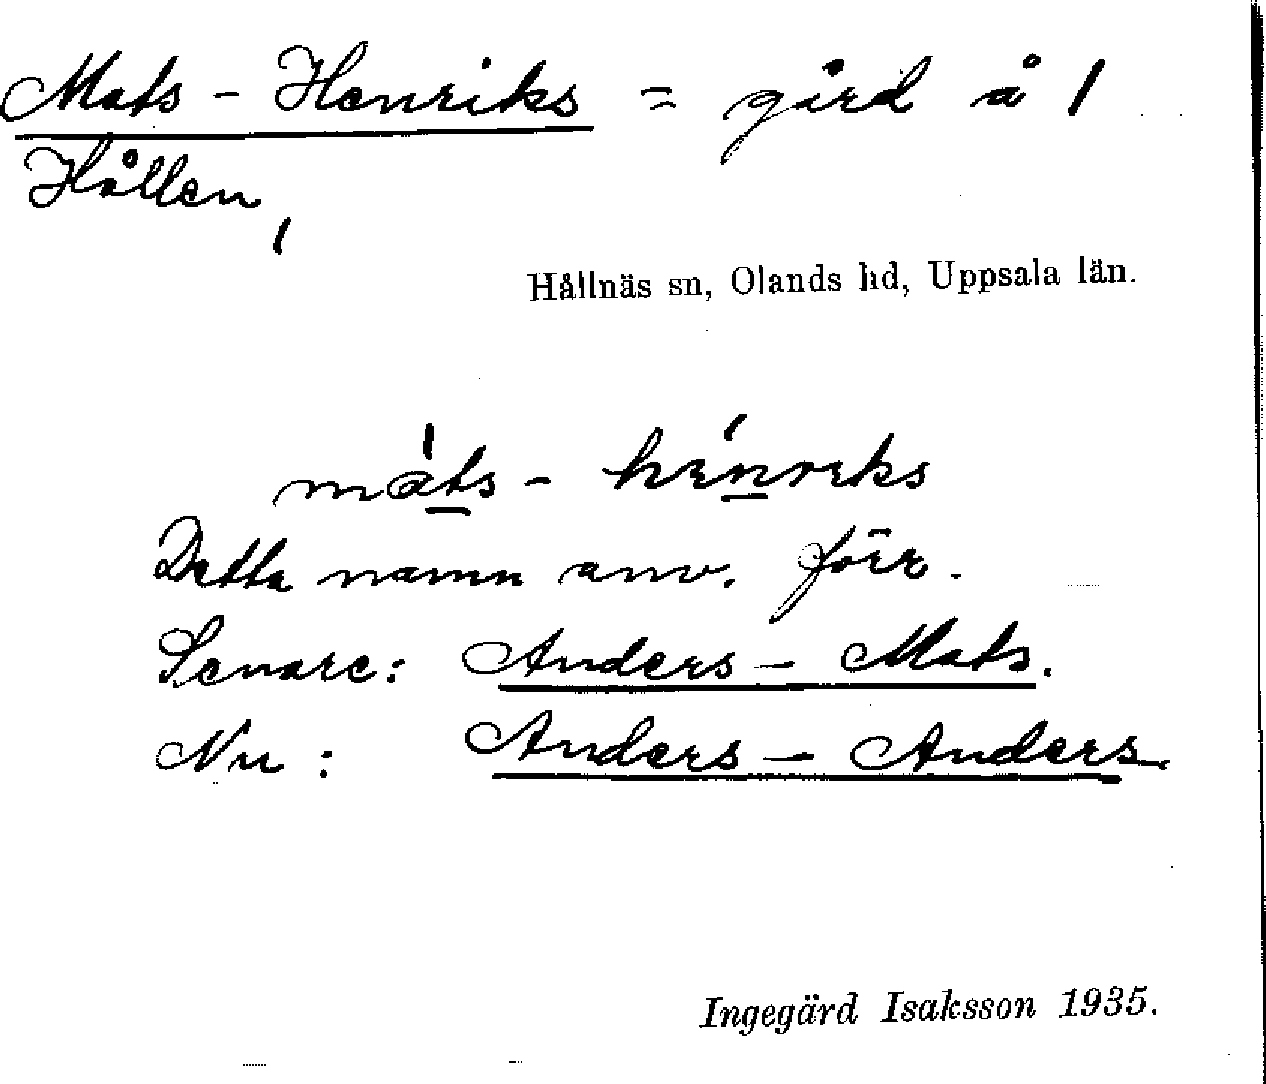 Mats - Henriks = gård å 1
Hållen,
Hållnäs sn, Olands hd, Uppsala län.
máts - hénreks
Detta namn anv. förr.
Senare: Anders - Mats.
Nu : Anders - Anders.
Ingegärd Isaksson 1935.